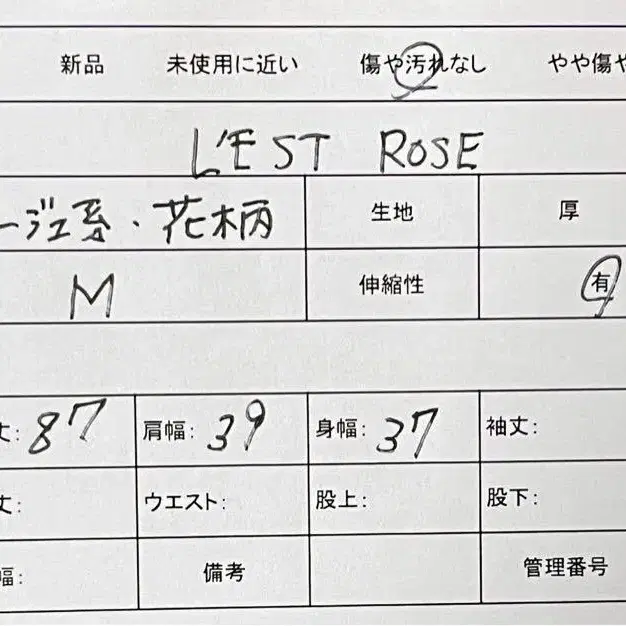 新品 未使用に近い 傷や汚れなし やや傷や
L'EST ROSE
ージュ系・花柄 生地 厚
M 伸縮性 有
丈: 87 肩幅: 39 身幅: 37 袖丈:
丈: ウエスト: 股上: 股下:
幅: 備考 管理番号